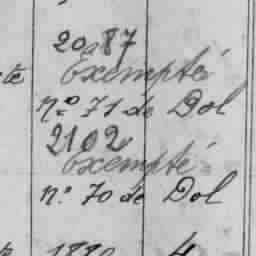 2087
Exempté
te
n.º 71 de Dol
2102
Exempté
n.º 70 de Dol
1880 4